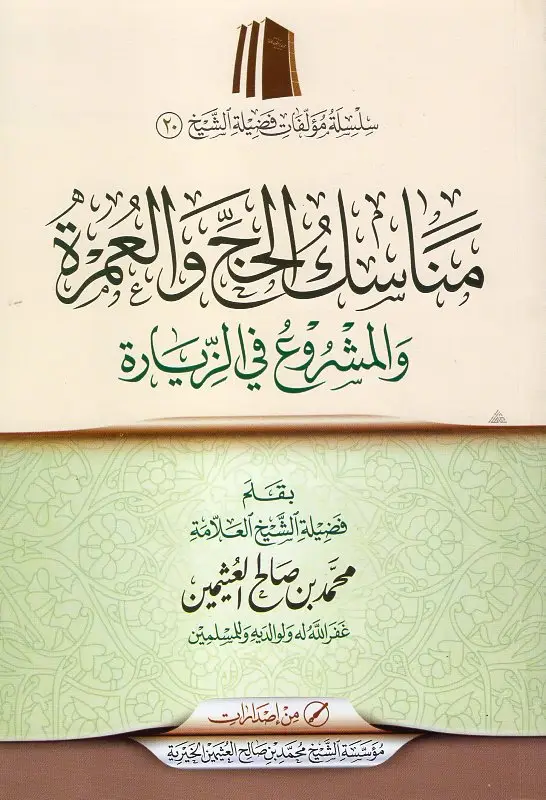 سِلْسِلَةُ مُؤَلَّفَاتِ فَضِيلَةِ الشَّيْخِ (٢٠)
مَنَاسِكُ الحَجِّ وَالعُمْرَةِ
وَالمَشْرُوعُ فِي الزِّيَارَةِ
بِقَلَمِ
فَضِيلَةِ الشَّيْخِ العَلَّامَةِ
محمَّد بن صالح العثيمين
غَفَرَ اللَّهُ لَهُ وَلِوَالِدَيْهِ وَلِلْمُسْلِمِين
مِنْ إِصْدَارَاتِ
مُؤَسَّسَةِ الشَّيْخِ مُحَمَّد بْنِ صَالِحٍ العُثَيْمِين الخَيْرِيَّةِ